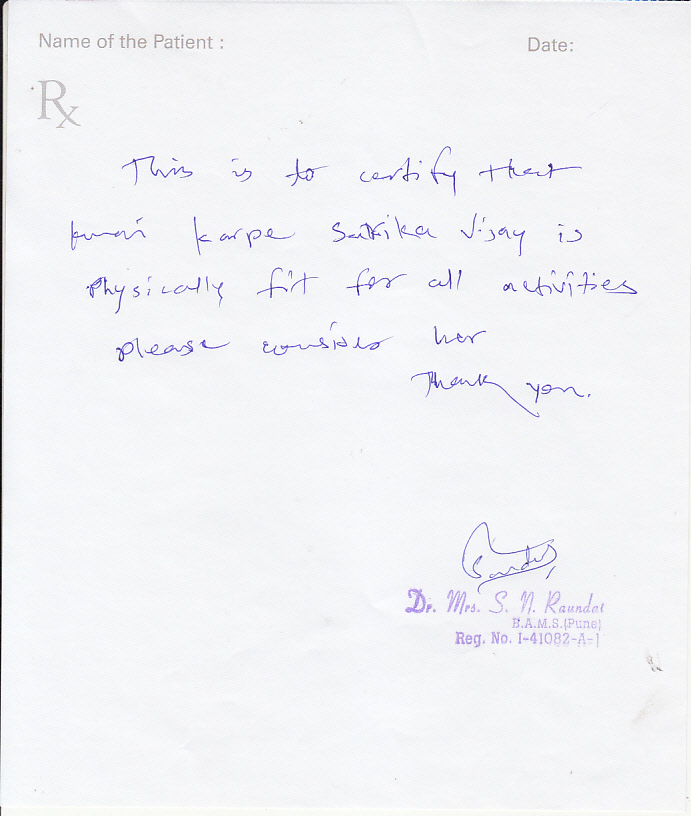 Name of the Patient : Date:
Rx
This is to certify that
kumari karpe Sarika Vijay is
Physically fit for all activities
please consider her
Thank you.
Dr. Mrs. S. N. Raundal
B.A.M.S.(Pune)
Reg. No. I-41082-A-1